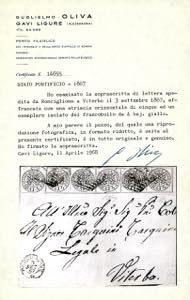 GUGLIELMO OLIVA
GAVI LIGURE
PERITO FILATELICO
Certificato N. 14655
STATO PONTIFICIO - 1867
Ho esaminato la soprascritta di lettera spedita da Ronciglione a Viterbo il 3 settembre 1867, affrancata con una striscia orizzontale di cinque ed un esemplare isolato del francobollo da 4 baj. giallo.
A mio parere il pezzo, del quale una riproduzione fotografica, in formato ridotto, è unita al presente certificato, è in tutto originale e genuino. Ho firmato la soprascritta.
Gavi Ligure, 11 Aprile 1968
Tarquinio Tarquini
Legale in
Viterbo